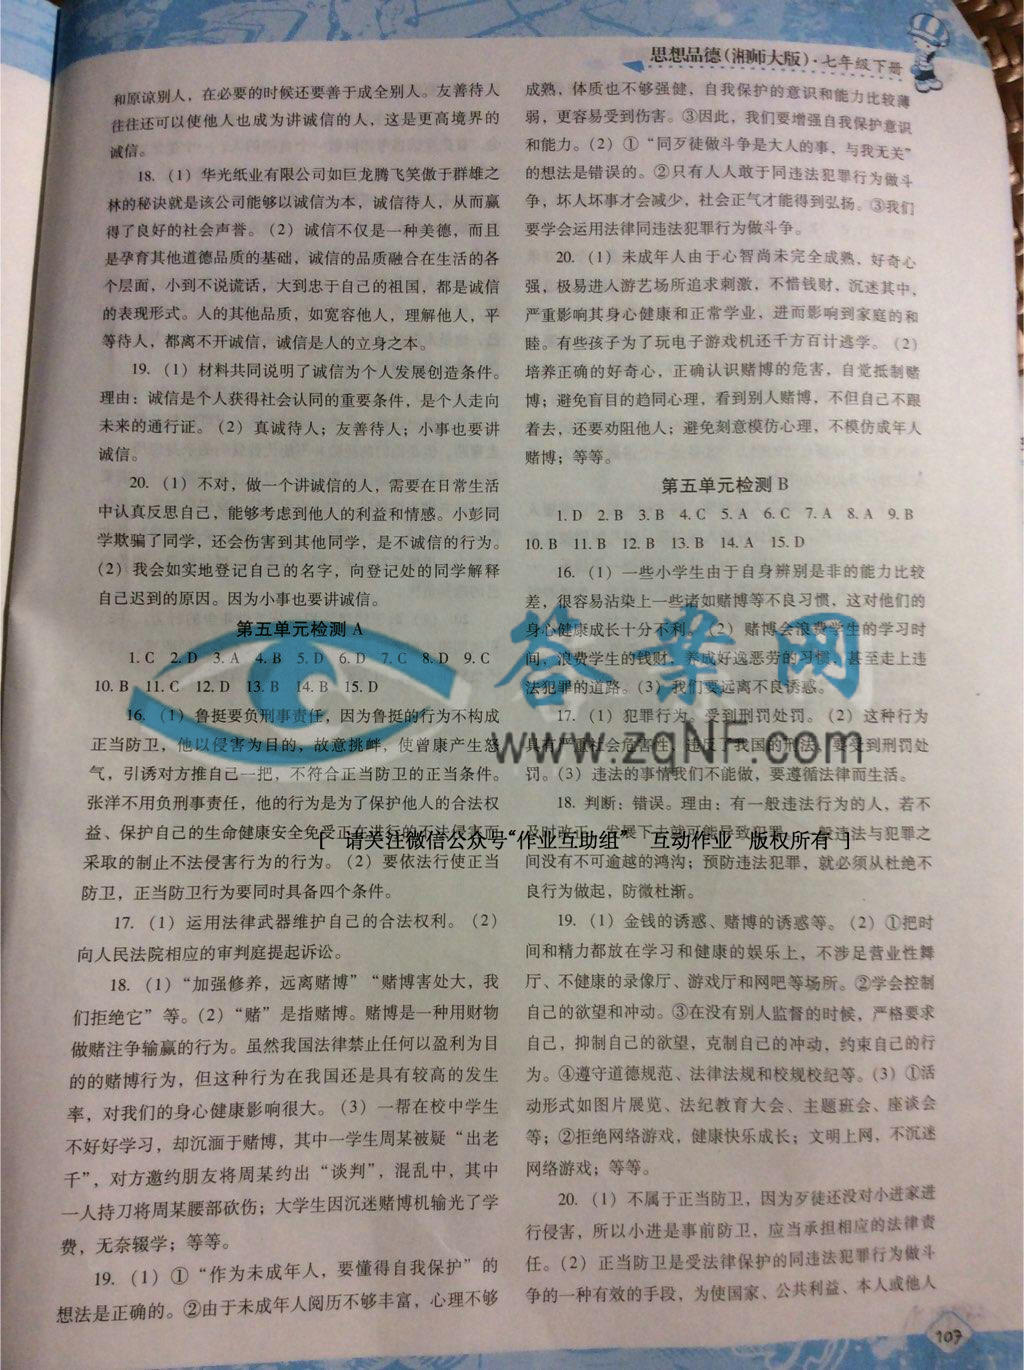 思想品德(湘师大版)·七年级下册
和原谅别人，在必要的时候还要善于成全别人。友善待人
往往还可以使他人也成为讲诚信的人，这是更高境界的
诚信。
18. (1) 华光纸业有限公司如巨龙腾飞笑傲于群雄之
林的秘诀就是该公司能够以诚信为本，诚信待人，从而赢
得了良好的社会声誉。(2) 诚信不仅是一种美德，而且
是孕育其他道德品质的基础，诚信的品质融合在生活的各
个层面，小到不说谎话，大到忠于自己的祖国，都是诚信
的表现形式。人的其他品质，如宽容他人，理解他人，平
等待人，都离不开诚信，诚信是人的立身之本。
19. (1) 材料共同说明了诚信为个人发展创造条件。
理由：诚信是个人获得社会认同的重要条件，是个人走向
未来的通行证。(2) 真诚待人；友善待人；小事也要讲
诚信。
20. (1) 不对，做一个讲诚信的人，需要在日常生活
中认真反思自己，能够考虑到他人的利益和情感。小彭同
学欺骗了同学，还会伤害到其他同学，是不诚信的行为。
(2) 我会如实地登记自己的名字，向登记处的同学解释
自己迟到的原因。因为小事也要讲诚信。
第五单元检测 A
1. C 2. D 3. A 4. B 5. D 6. D 7. C 8. D 9. C
10. B 11. C 12. D 13. B 14. B 15. D
16. (1) 鲁挺要负刑事责任，因为鲁挺的行为不构成
正当防卫，他以侵害为目的，故意挑衅，使曾康产生怒
气，引诱对方推自己一把，不符合正当防卫的正当条件。
张洋不用负刑事责任，他的行为是为了保护他人的合法权
益、保护自己的生命健康安全免受正在进行的不法侵害而
采取的制止不法侵害行为的行为。(2) 要依法行使正当
防卫，正当防卫行为要同时具备四个条件。
17. (1) 运用法律武器维护自己的合法权利。(2)
向人民法院相应的审判庭提起诉讼。
18. (1)“加强修养，远离赌博”“赌博害处大，我
们拒绝它”等。(2)“赌”是指赌博。赌博是一种用财物
做赌注争输赢的行为。虽然我国法律禁止任何以盈利为目
的的赌博行为，但这种行为在我国还是具有较高的发生
率，对我们的身心健康影响很大。(3) 一帮在校中学生
不好好学习，却沉湎于赌博，其中一学生周某被疑“出老
千”，对方邀约朋友将周某约出“谈判”，混乱中，其中
一人持刀将周某腰部砍伤；大学生因沉迷赌博机输光了学
费，无奈辍学；等等。
19. (1) ①“作为未成年人，要懂得自我保护”的
想法是正确的。②由于未成年人阅历不够丰富，心理不够
成熟，体质也不够强健，自我保护的意识和能力比较薄
弱，更容易受到伤害。③因此，我们要增强自我保护意识
和能力。(2) ①“同歹徒做斗争是大人的事，与我无关”
的想法是错误的。②只有人人敢于同违法犯罪行为做斗
争，坏人坏事才会减少，社会正气才能得到弘扬。③我们
要学会运用法律同违法犯罪行为做斗争。
20. (1) 未成年人由于心智尚未完全成熟、好奇心
强，极易进入游艺场所追求刺激，不惜钱财，沉迷其中，
严重影响其身心健康和正常学业，进而影响到家庭的和
睦。有些孩子为了玩电子游戏机还千方百计逃学。(2)
培养正确的好奇心，正确认识赌博的危害，自觉抵制赌
博；避免盲目的趋同心理，看到别人赌博，不但自己不跟
着去，还要劝阻他人；避免刻意模仿心理，不模仿成年人
赌博；等等。
第五单元检测 B
1. D 2. B 3. B 4. C 5. A 6. C 7. A 8. A 9. B
10. B 11. B 12. B 13. B 14. A 15. D
16. (1) 一些小学生由于自身辨别是非的能力比较
差，很容易沾染上一些诸如赌博等不良习惯，这对他们的
身心健康成长十分不利。(2) 赌博会浪费学生的学习时
间，浪费学生的钱财，养成好逸恶劳的习惯，甚至走上违
法犯罪的道路。(3) 我们要远离不良诱惑。
17. (1) 犯罪行为。受到刑罚处罚。(2) 这种行为
具有严重社会危害性，违反了我国的刑法，要受到刑罚处
罚。(3) 违法的事情我们不能做，要遵循法律而生活。
18. 判断：错误。理由：有一般违法行为的人，若不
及时改正，发展下去就可能导致犯罪，一般违法与犯罪之
间没有不可逾越的鸿沟；预防违法犯罪，就必须从杜绝不
良行为做起，防微杜渐。
19. (1) 金钱的诱惑、赌博的诱惑等。(2) ①把时
间和精力都放在学习和健康的娱乐上，不涉足营业性舞
厅、不健康的录像厅、游戏厅和网吧等场所。②学会控制
自己的欲望和冲动。③在没有别人监督的时候，严格要求
自己，抑制自己的欲望，克制自己的冲动，约束自己的行
为。④遵守道德规范、法律法规和校规校纪等。(3) ①活
动形式如图片展览、法纪教育大会、主题班会、座谈会
等；②拒绝网络游戏，健康快乐成长；文明上网，不沉迷
网络游戏；等等。
20. (1) 不属于正当防卫，因为歹徒还没对小进家进
行侵害，所以小进是事前防卫，应当承担相应的法律责
任。(2) 正当防卫是受法律保护的同违法犯罪行为做斗
争的一种有效的手段，为使国家、公共利益、本人或他人
答案网
www.zqNF.com
[ 请关注微信公众号“作业互助组” 互动作业 版权所有 ]
107